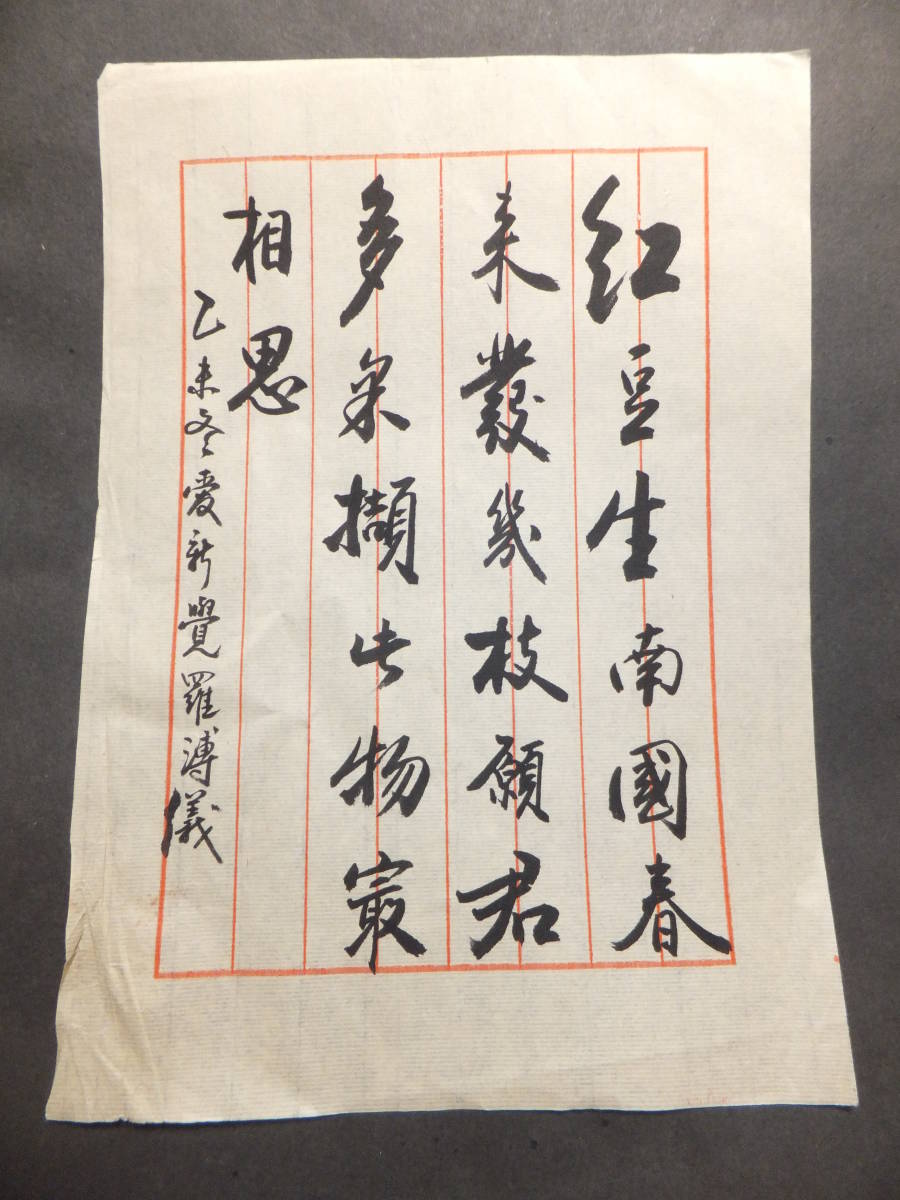 红豆生南國春
来發幾枝願君
多采擷此物寂
相思
乙未冬愛新覺羅溥儀